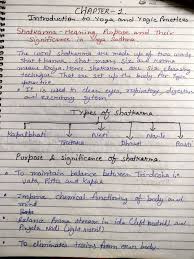 CHAPTER-1
Introduction to Yoga and Yogic Practices
Shatkarma - Meaning, Purpose and their
Significance in Yoga Sadhana.
The word shatkarma are made up of two words
Shat + karma. Shat means Six and karma
means Kriya. Hence shatkarma are six cleansing
technique. That are set up the body for Yogic
practice.
It is used to clean eyes, respiratory, digestion
and excretory system.
Types of shatkarma
Kapalbhati Neti Nauli
Trataka Dhauti Basti
Purpose & Significance of shatkarma
To maintain balance between Tridosha ie
vata, Pitta and Kapha
Improve chemical functioning of body and
mind
Balance Prana stream in ida (left nostril) and
Pingala Nadi (right nostril)
To eliminate toxins from our body.